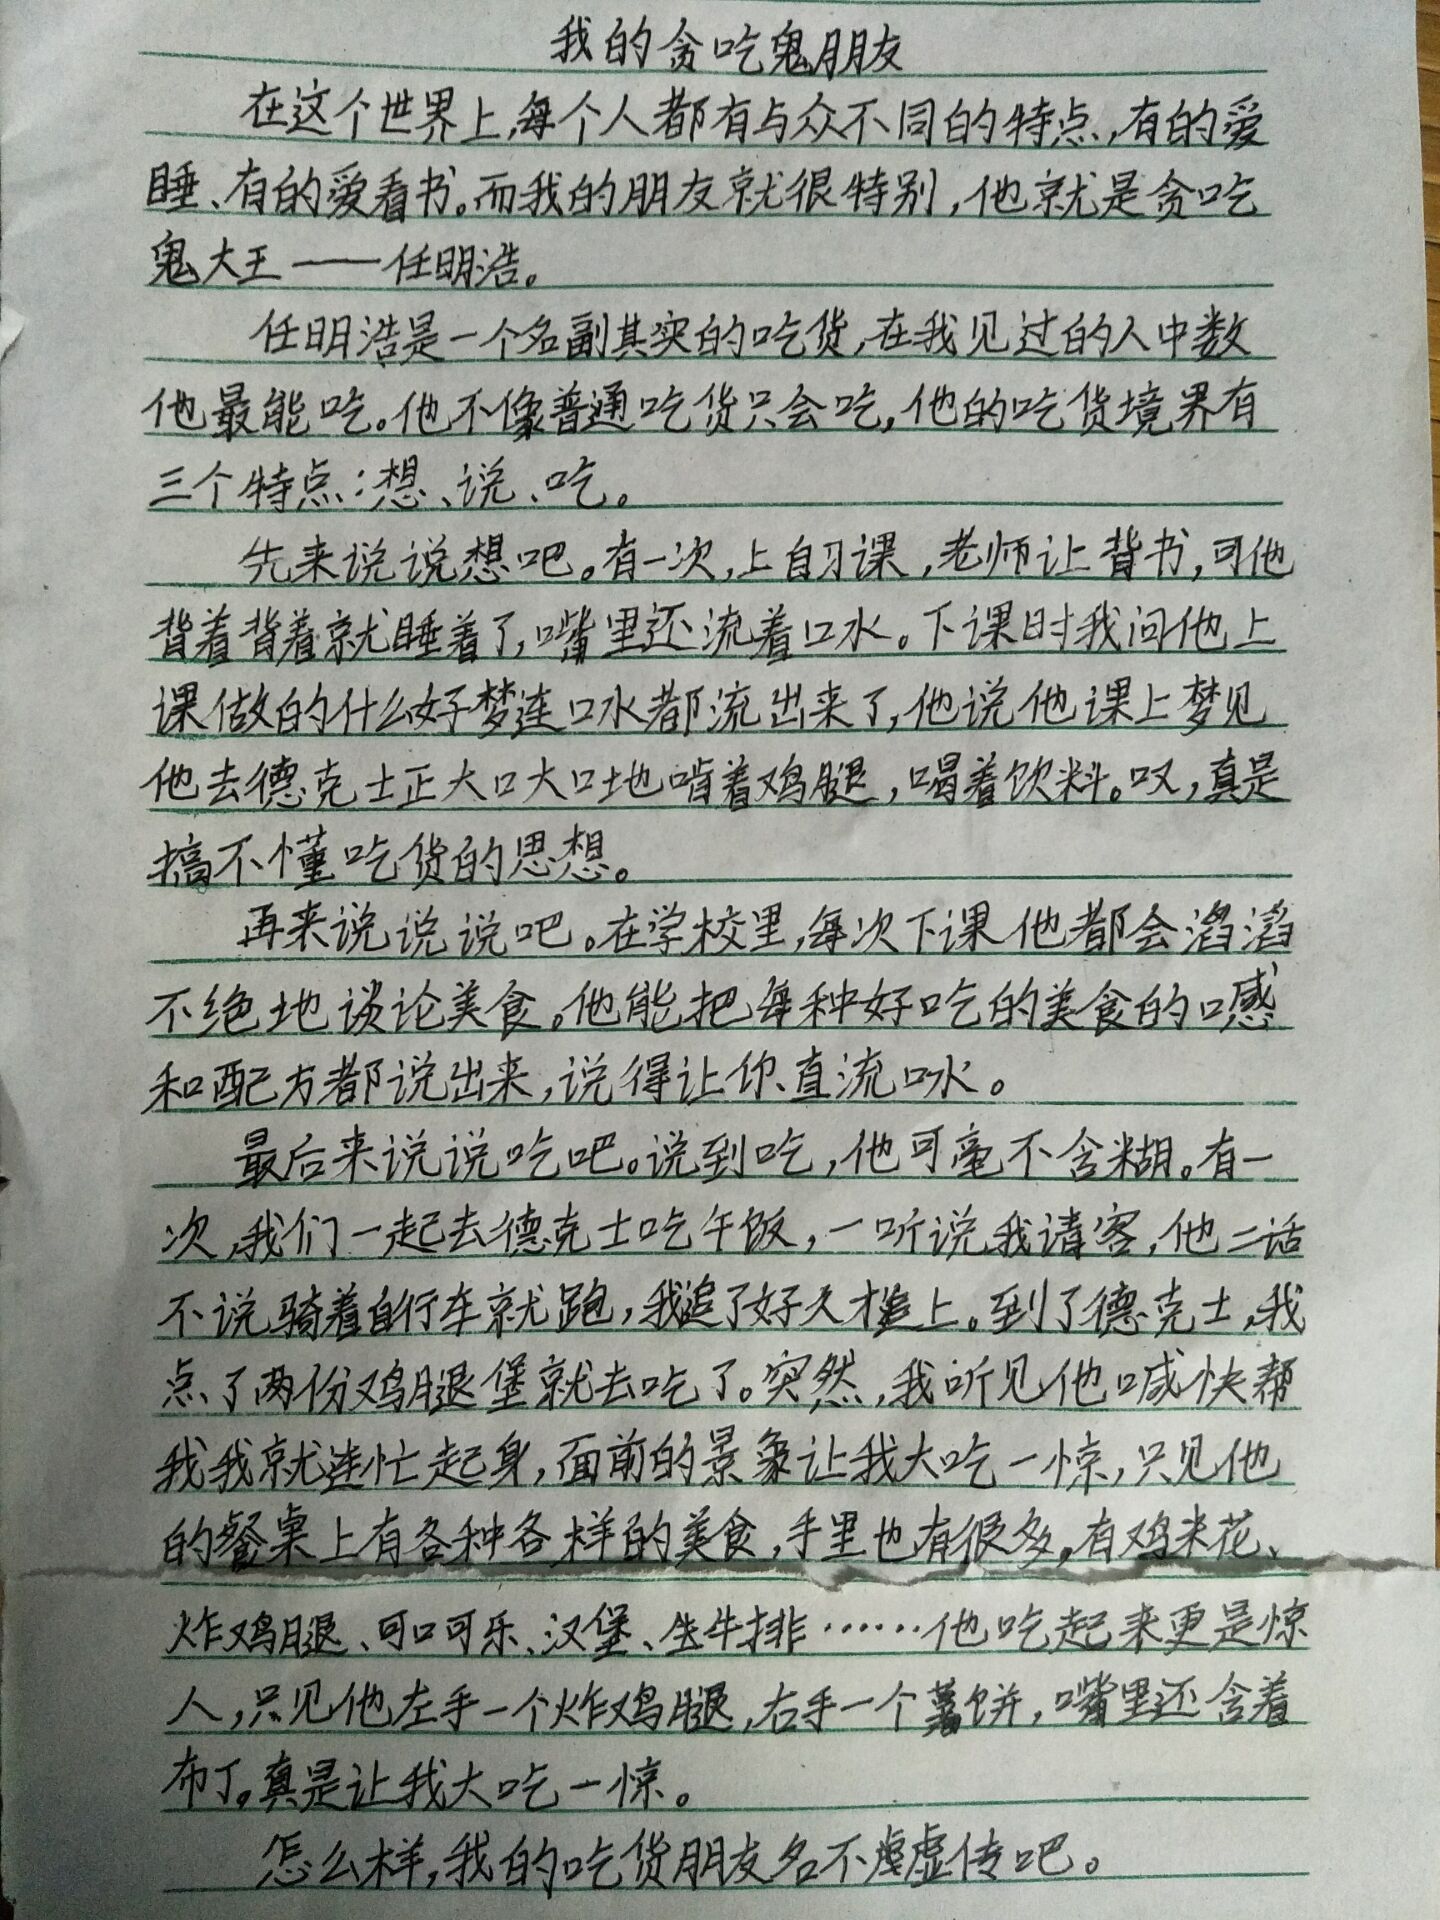 我的贪吃鬼朋友
在这个世界上,每个人都有与众不同的特点,有的爱
睡、有的爱看书。而我的朋友就很特别,他就是贪吃
鬼大王——任明浩。
任明浩是一个名副其实的吃货,在我见过的人中数
他最能吃。他不像普通吃货只会吃,他的吃货境界有
三个特点:想、说、吃。
先来说说想吧。有一次,上自习课,老师让背书,可他
背着背着就睡着了,嘴里还流着口水。下课时我问他上
课做的什么好梦连口水都流出来了,他说他课上梦见
他去德克士正大口大口地啃着鸡腿,喝着饮料。叹,真是
搞不懂吃货的思想。
再来说说说吧。在学校里,每次下课他都会滔滔
不绝地谈论美食。他能把每种好吃的美食的口感
和配方都说出来,说得让你直流口水。
最后来说说吃吧。说到吃,他可毫不含糊。有一
次,我们一起去德克士吃午饭,一听说我请客,他二话
不说骑着自行车就跑,我追了好久才追上。到了德克士,我
点了两份鸡腿堡就去吃了。突然,我听见他喊快帮
我我就连忙起身,面前的景象让我大吃一惊,只见他
的餐桌上有各种各样的美食,手里也有很多,有鸡米花、
炸鸡腿、可口可乐、汉堡、生牛排……他吃起来更是惊
人,只见他左手一个炸鸡腿,右手一个薯饼,嘴里还含着
布丁,真是让我大吃一惊。
怎么样,我的吃货朋友名不虚传吧。